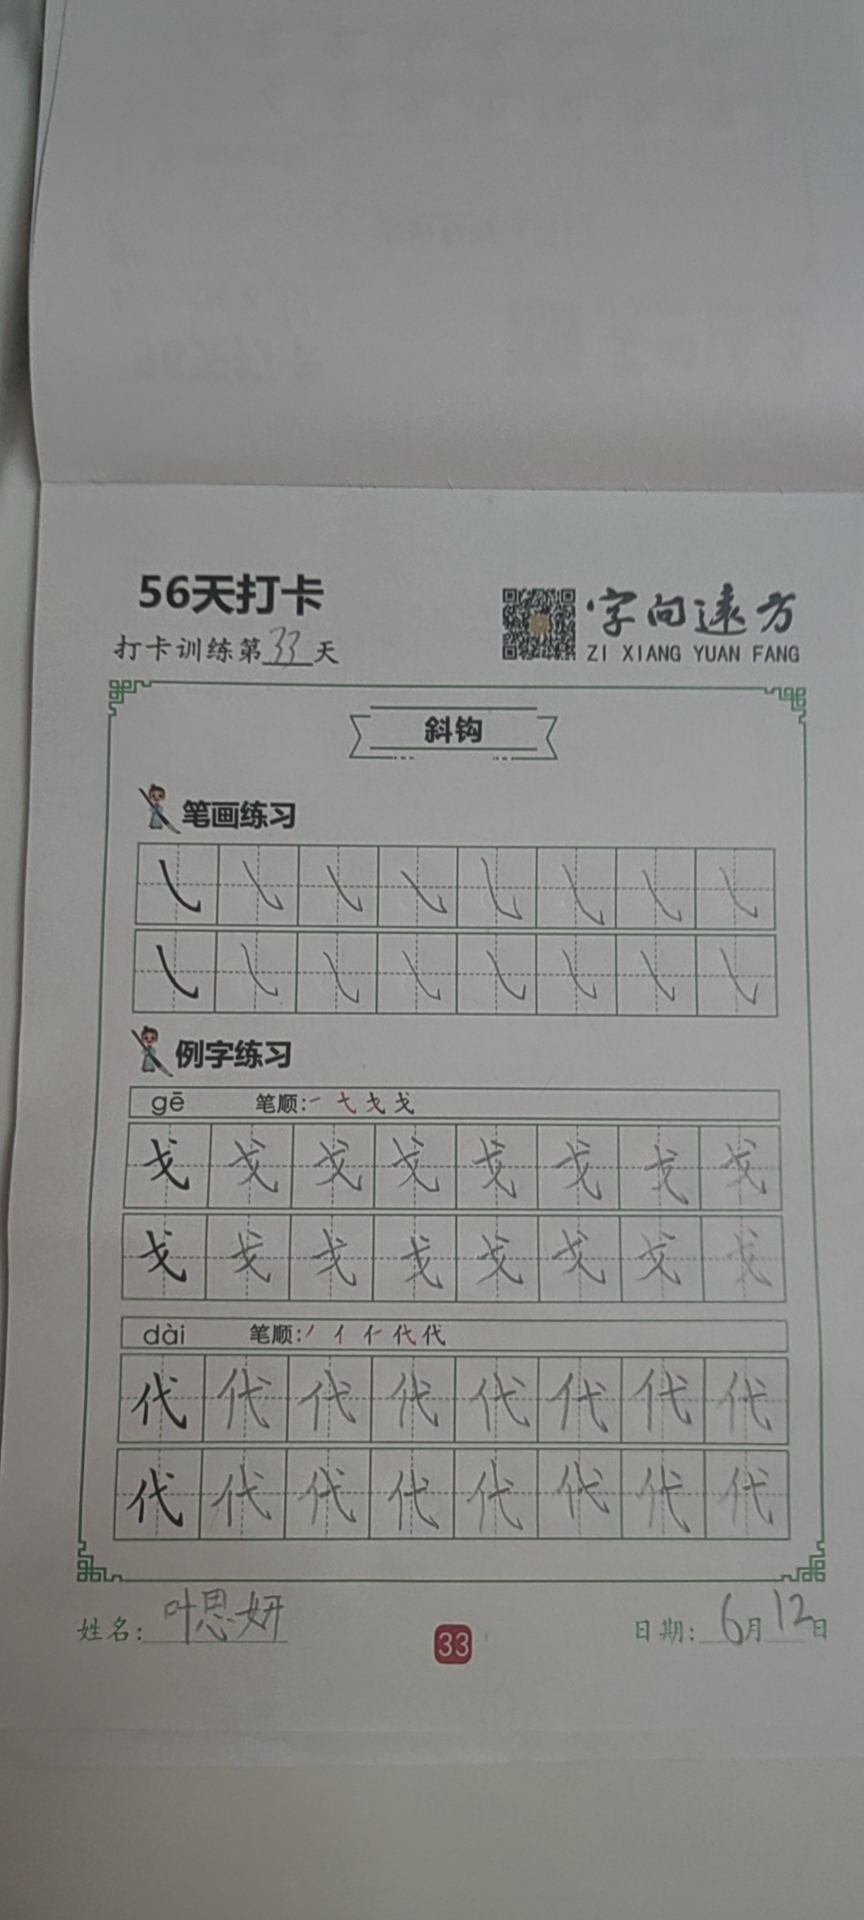 56天打卡
字向远方
打卡训练第33天
ZI XIANG YUAN FANG
斜钩
笔画练习
例字练习
gē 笔顺:
戈 戈 戈 戈 戈 戈 戈 戈
戈 戈 戈 戈 戈 戈 戈 戈
dài 笔顺:
代 代 代 代 代 代 代 代
代 代 代 代 代 代 代 代
姓名: 叶思妍
33
日期: 6月12日